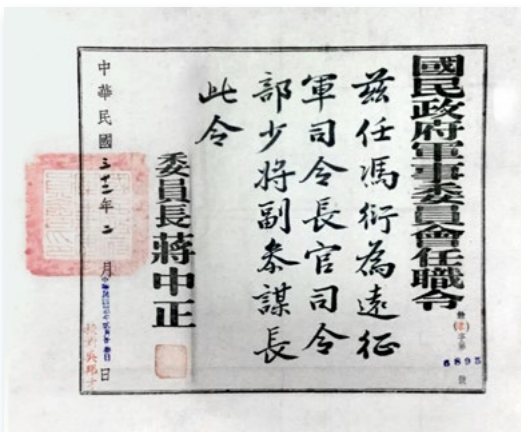 國民政府軍事委員會任職令
6895
號
茲任馮衍為遠征
軍司令長官司令
部少將副參謀長
此令
委員長蔣中正
中華民國三十二年二月
日